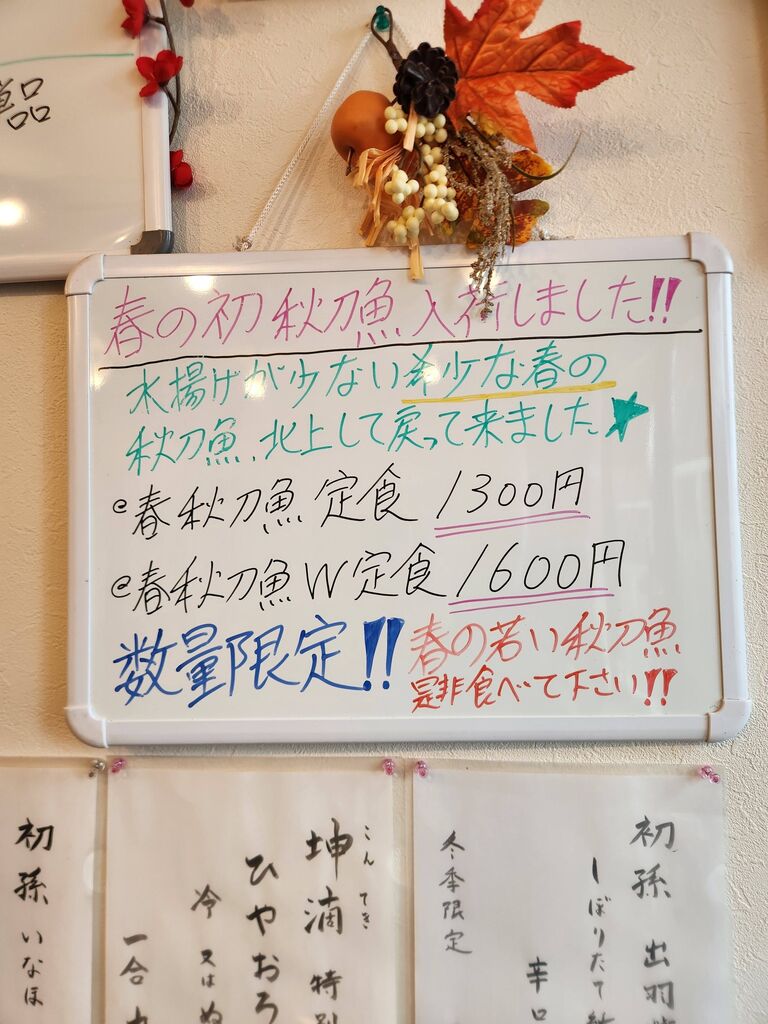 品
春の初秋刀魚入荷しました!!
水揚げが少ない希少な春の
秋刀魚、北上して戻って来ました★
春秋刀魚定食 1300円
春秋刀魚W定食 1600円
数量限定!!
春の若い秋刀魚
是非食べて下さい!!
初孫 出羽
しぼりたて
辛口
冬季限定
こんてき
坤滴 特別
ひやおろ
冷 又は ぬ
一合
初孫 いなほ